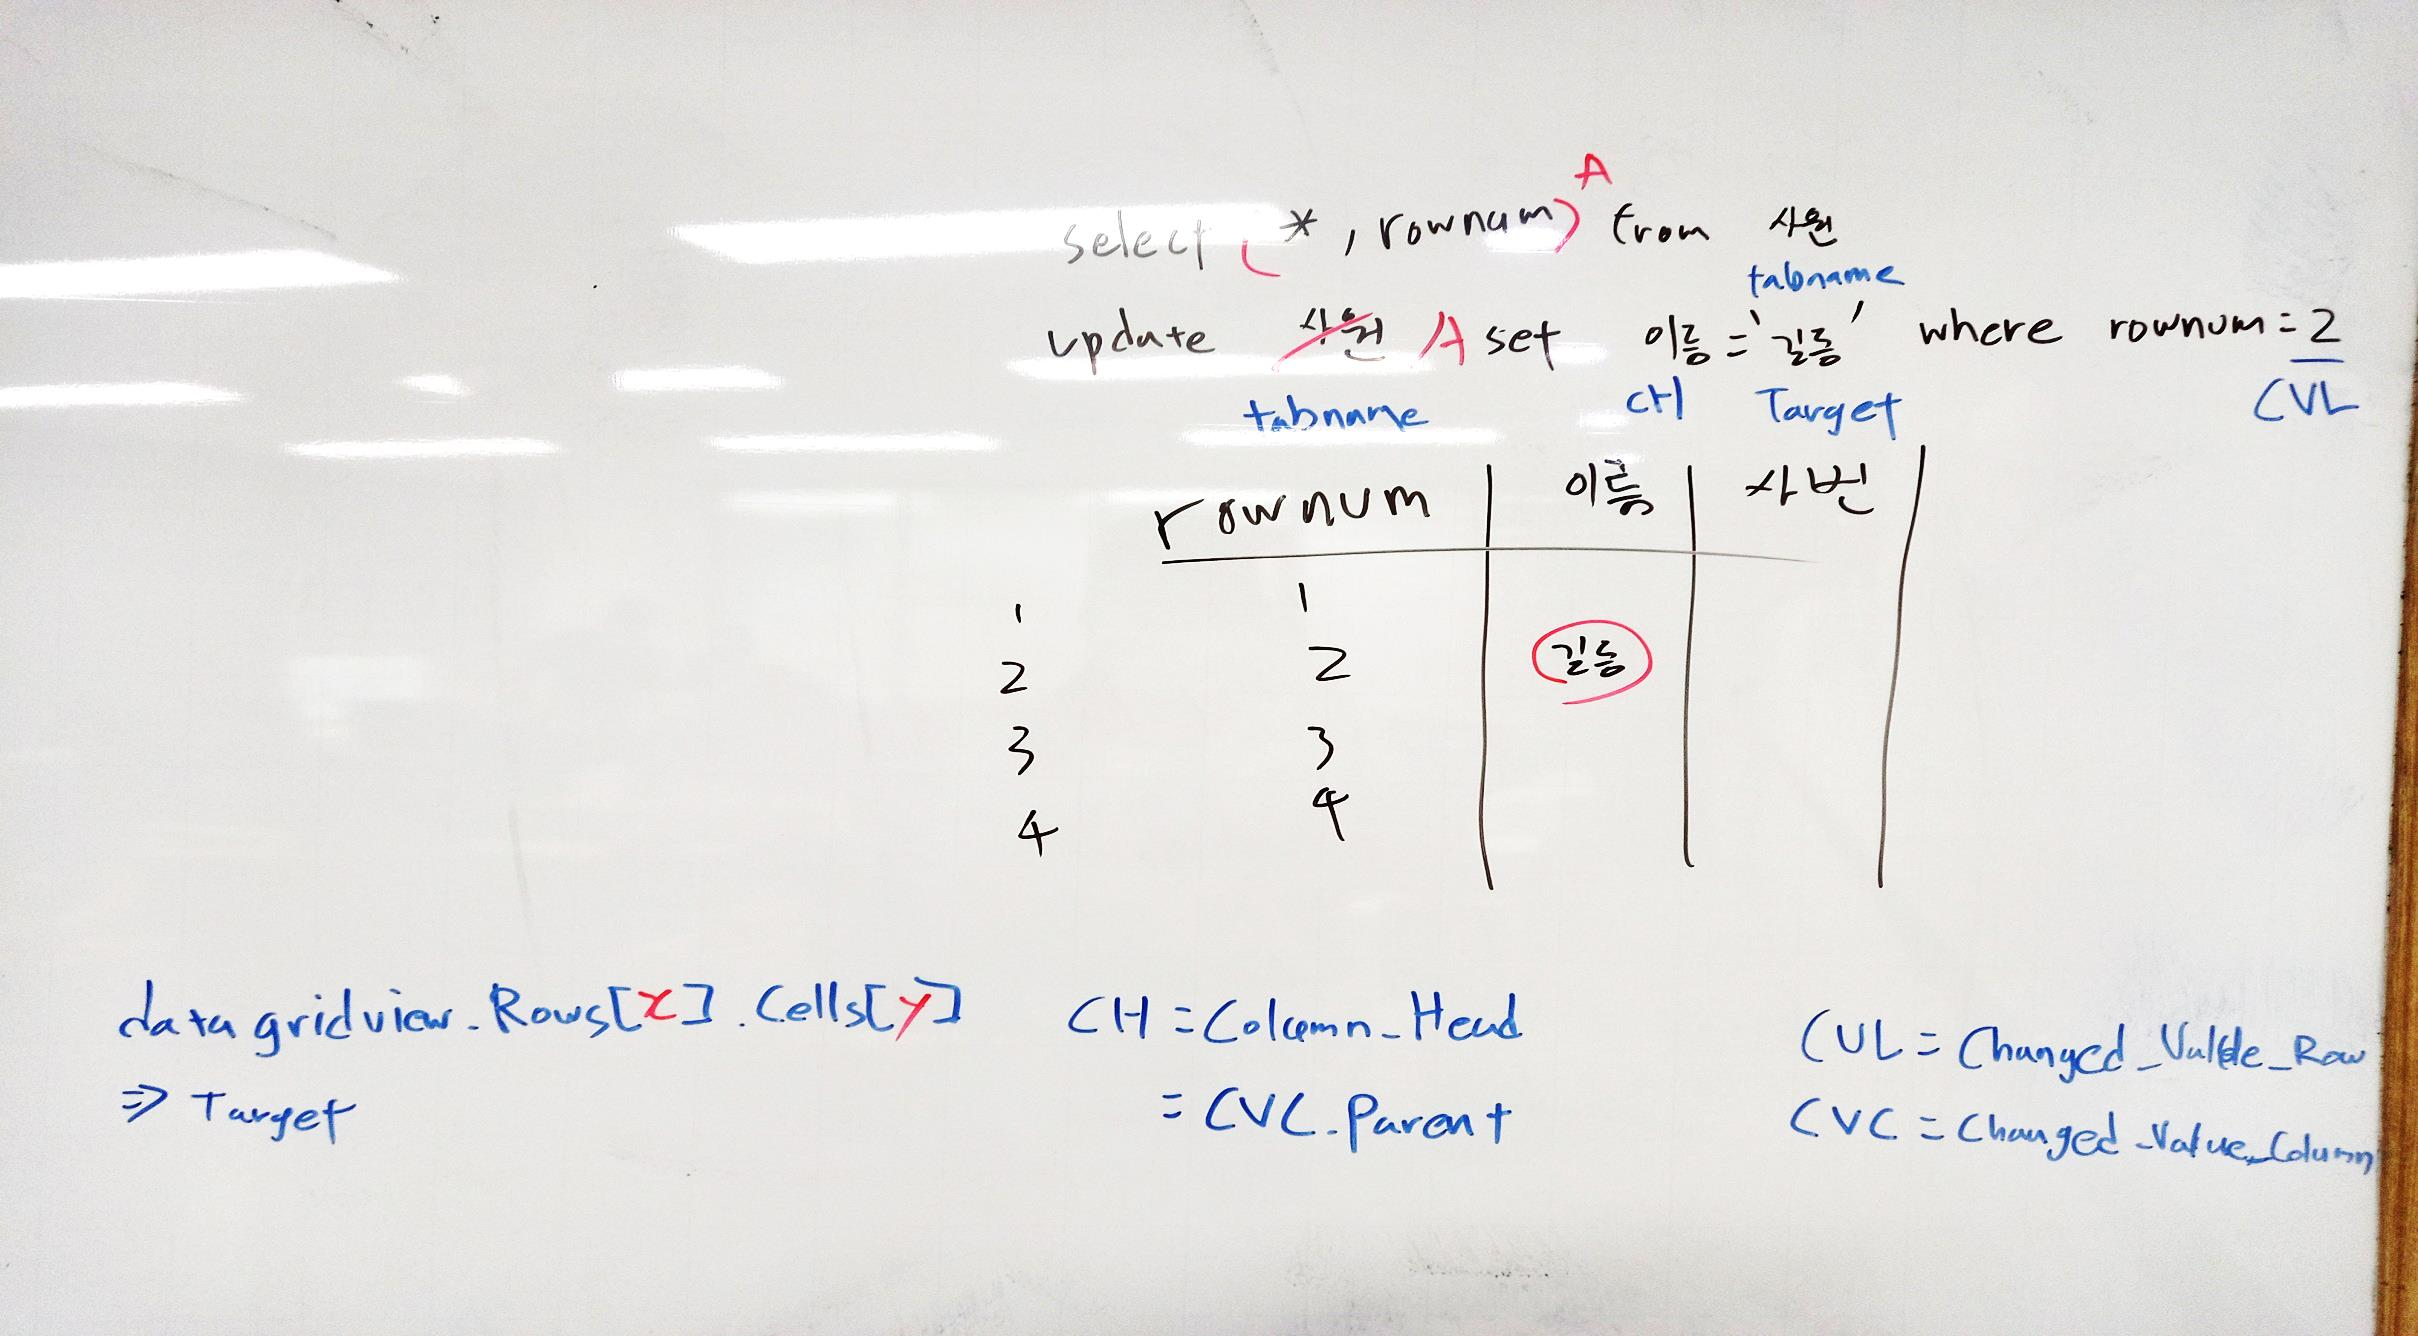 A
select ( *, rownum) from 사원
tabname
update 사원 A set 이름='길동' where rownum=2
tabname CH Target CVL
rownum 이름 사번
1 1
2 2 길동
3 3
4 4
datagridview.Rows[x].Cells[y] CH=Column_Head
⇒ Target =CVC.Parent
CVL=Changed_Value_Row
CVC=Changed_Value_Column